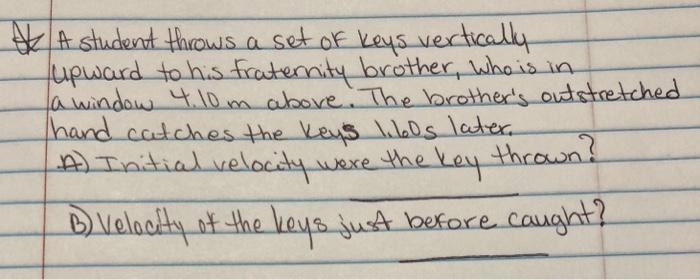 A student throws a set of keys vertically
upward to his fraternity brother, who is in
a window 4.10 m above. The brother's outstretched
hand catches the keys 1.60s later.
A) Initial velocity were the key thrown?
B) Velocity of the keys just before caught?